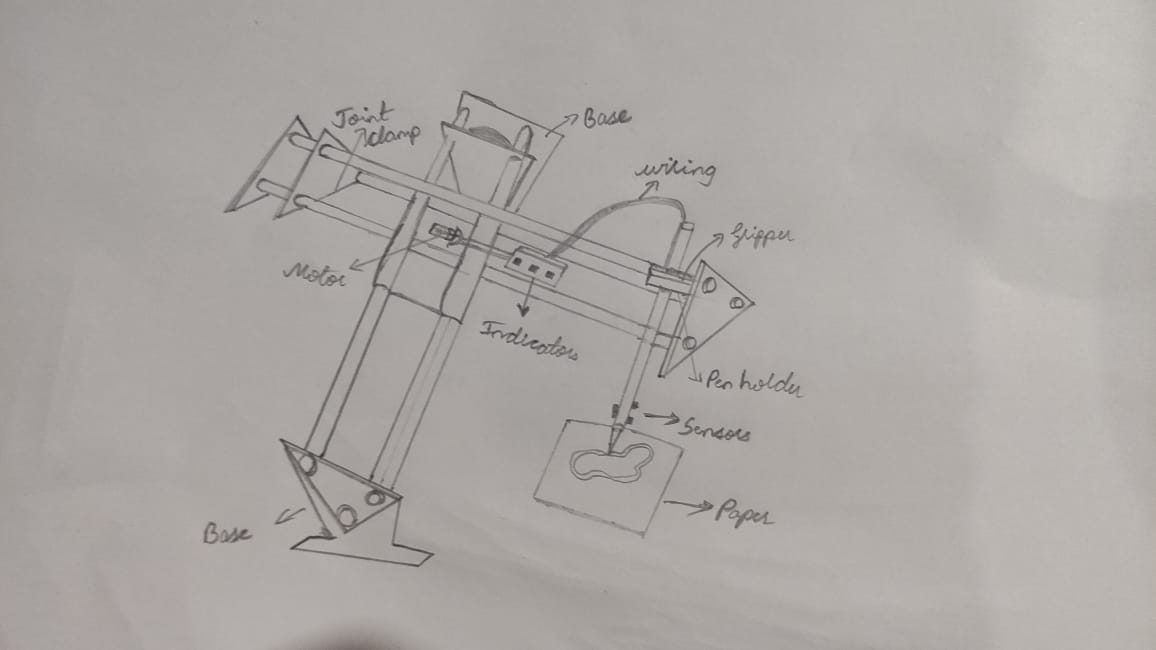 Joint
clamp
Base
wiring
Gripper
Motor
Indicators
Pen holder
Sensors
Paper
Base